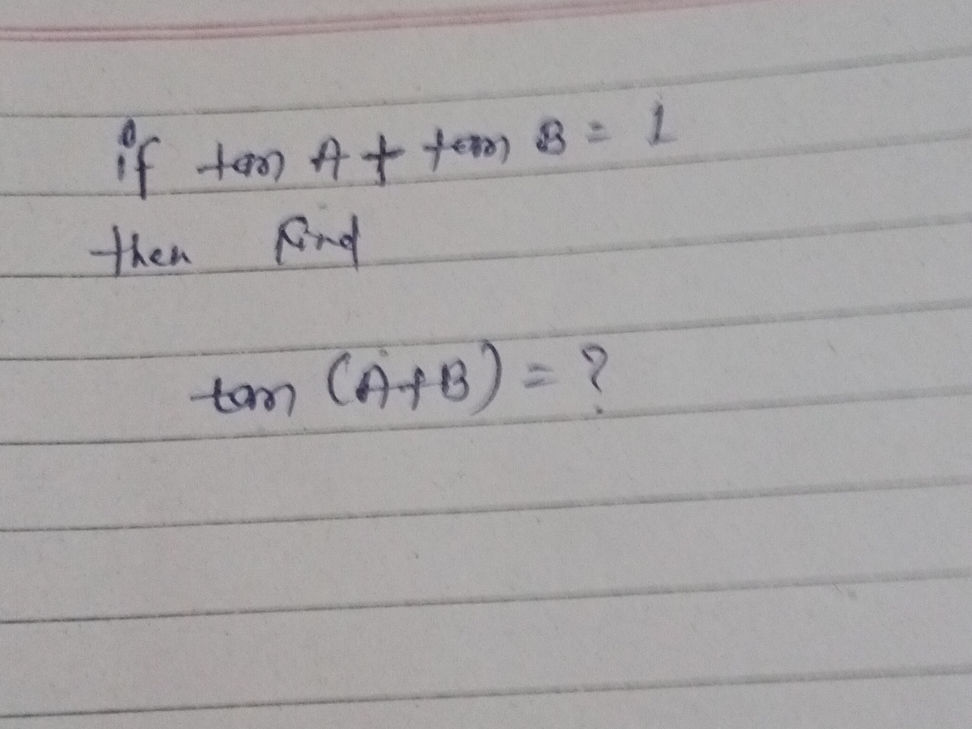 if tan A + tan B = 1
then find
tan (A+B) = ?